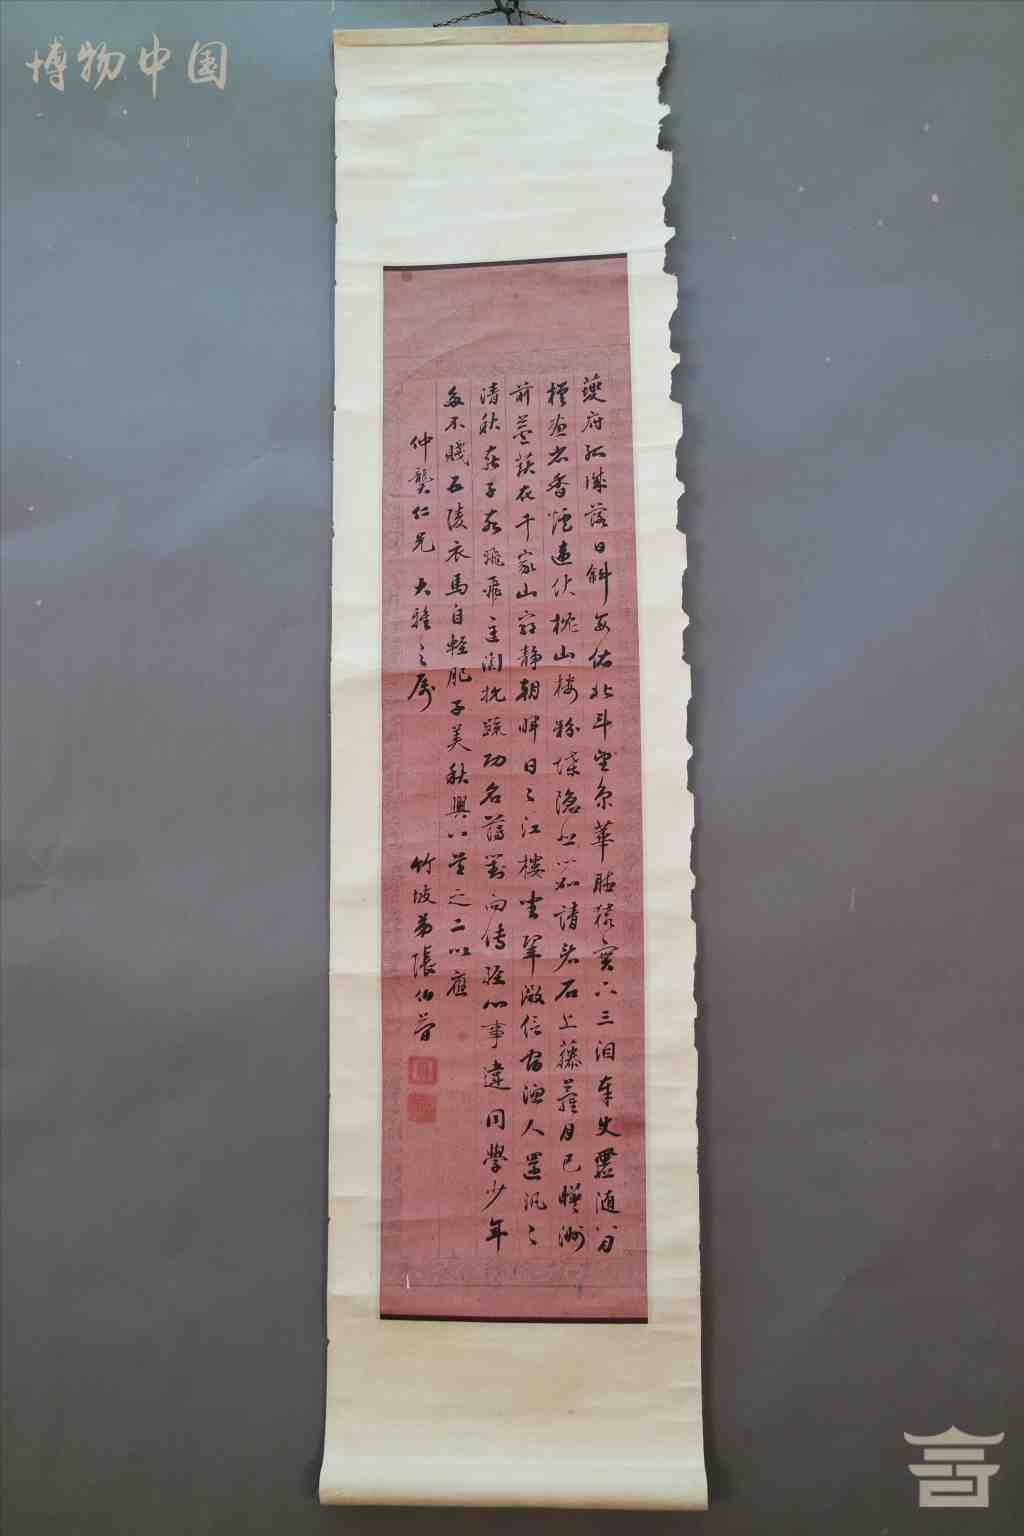 博物中国
夔府孤城落日斜每依北斗望京華聽猿實下三淚奉使虛隨八月
槎畫省香爐違伏枕山樓粉堞隱悲笳請看石上藤蘿月已映洲
前蘆荻花千家山郭靜朝暉日〻江樓坐翠微信宿漁人還汎〻
清秋燕子故飛飛匡衡抗疏功名薄劉向傳經心事違同學少年
多不賤五陵衣馬自輕肥子美秋興八首之二以應
仲龔仁兄大雅之屬 竹坡弟張伯